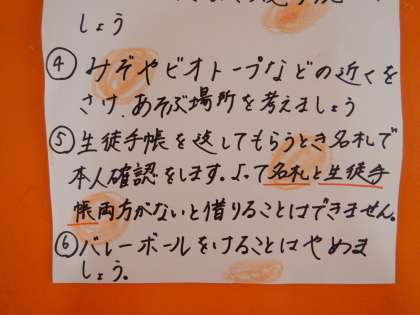 しょう
④ みぞやビオトープなどの近くを
さけ、あそぶ場所を考えましょう
⑤ 生徒手帳を返してもらうとき名札で
本人確認をします。よって名札と生徒手
帳両方がないと借りることはできません。
⑥ バレーボールをけることはやめま
しょう。